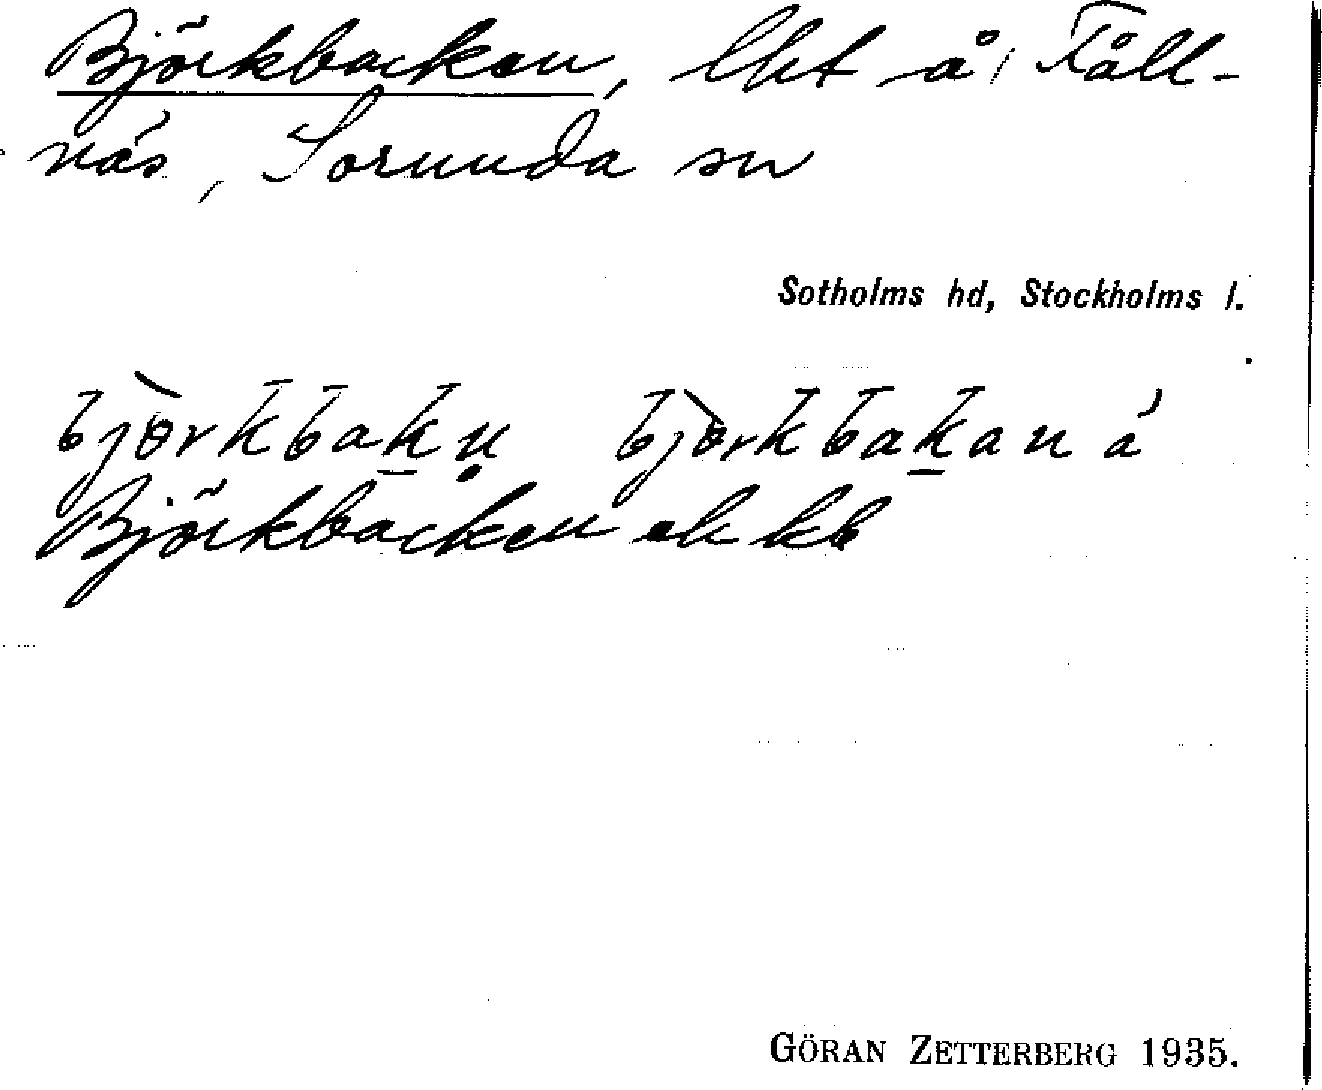 Björkbacken, lht å Fåll-
näs, Sorunda sn
Sotholms hd, Stockholms l.
bjòrkbak̠ṇ bjòrkbak̠an á
Björkbacken ek kb
GÖRAN ZETTERBERG 1935.